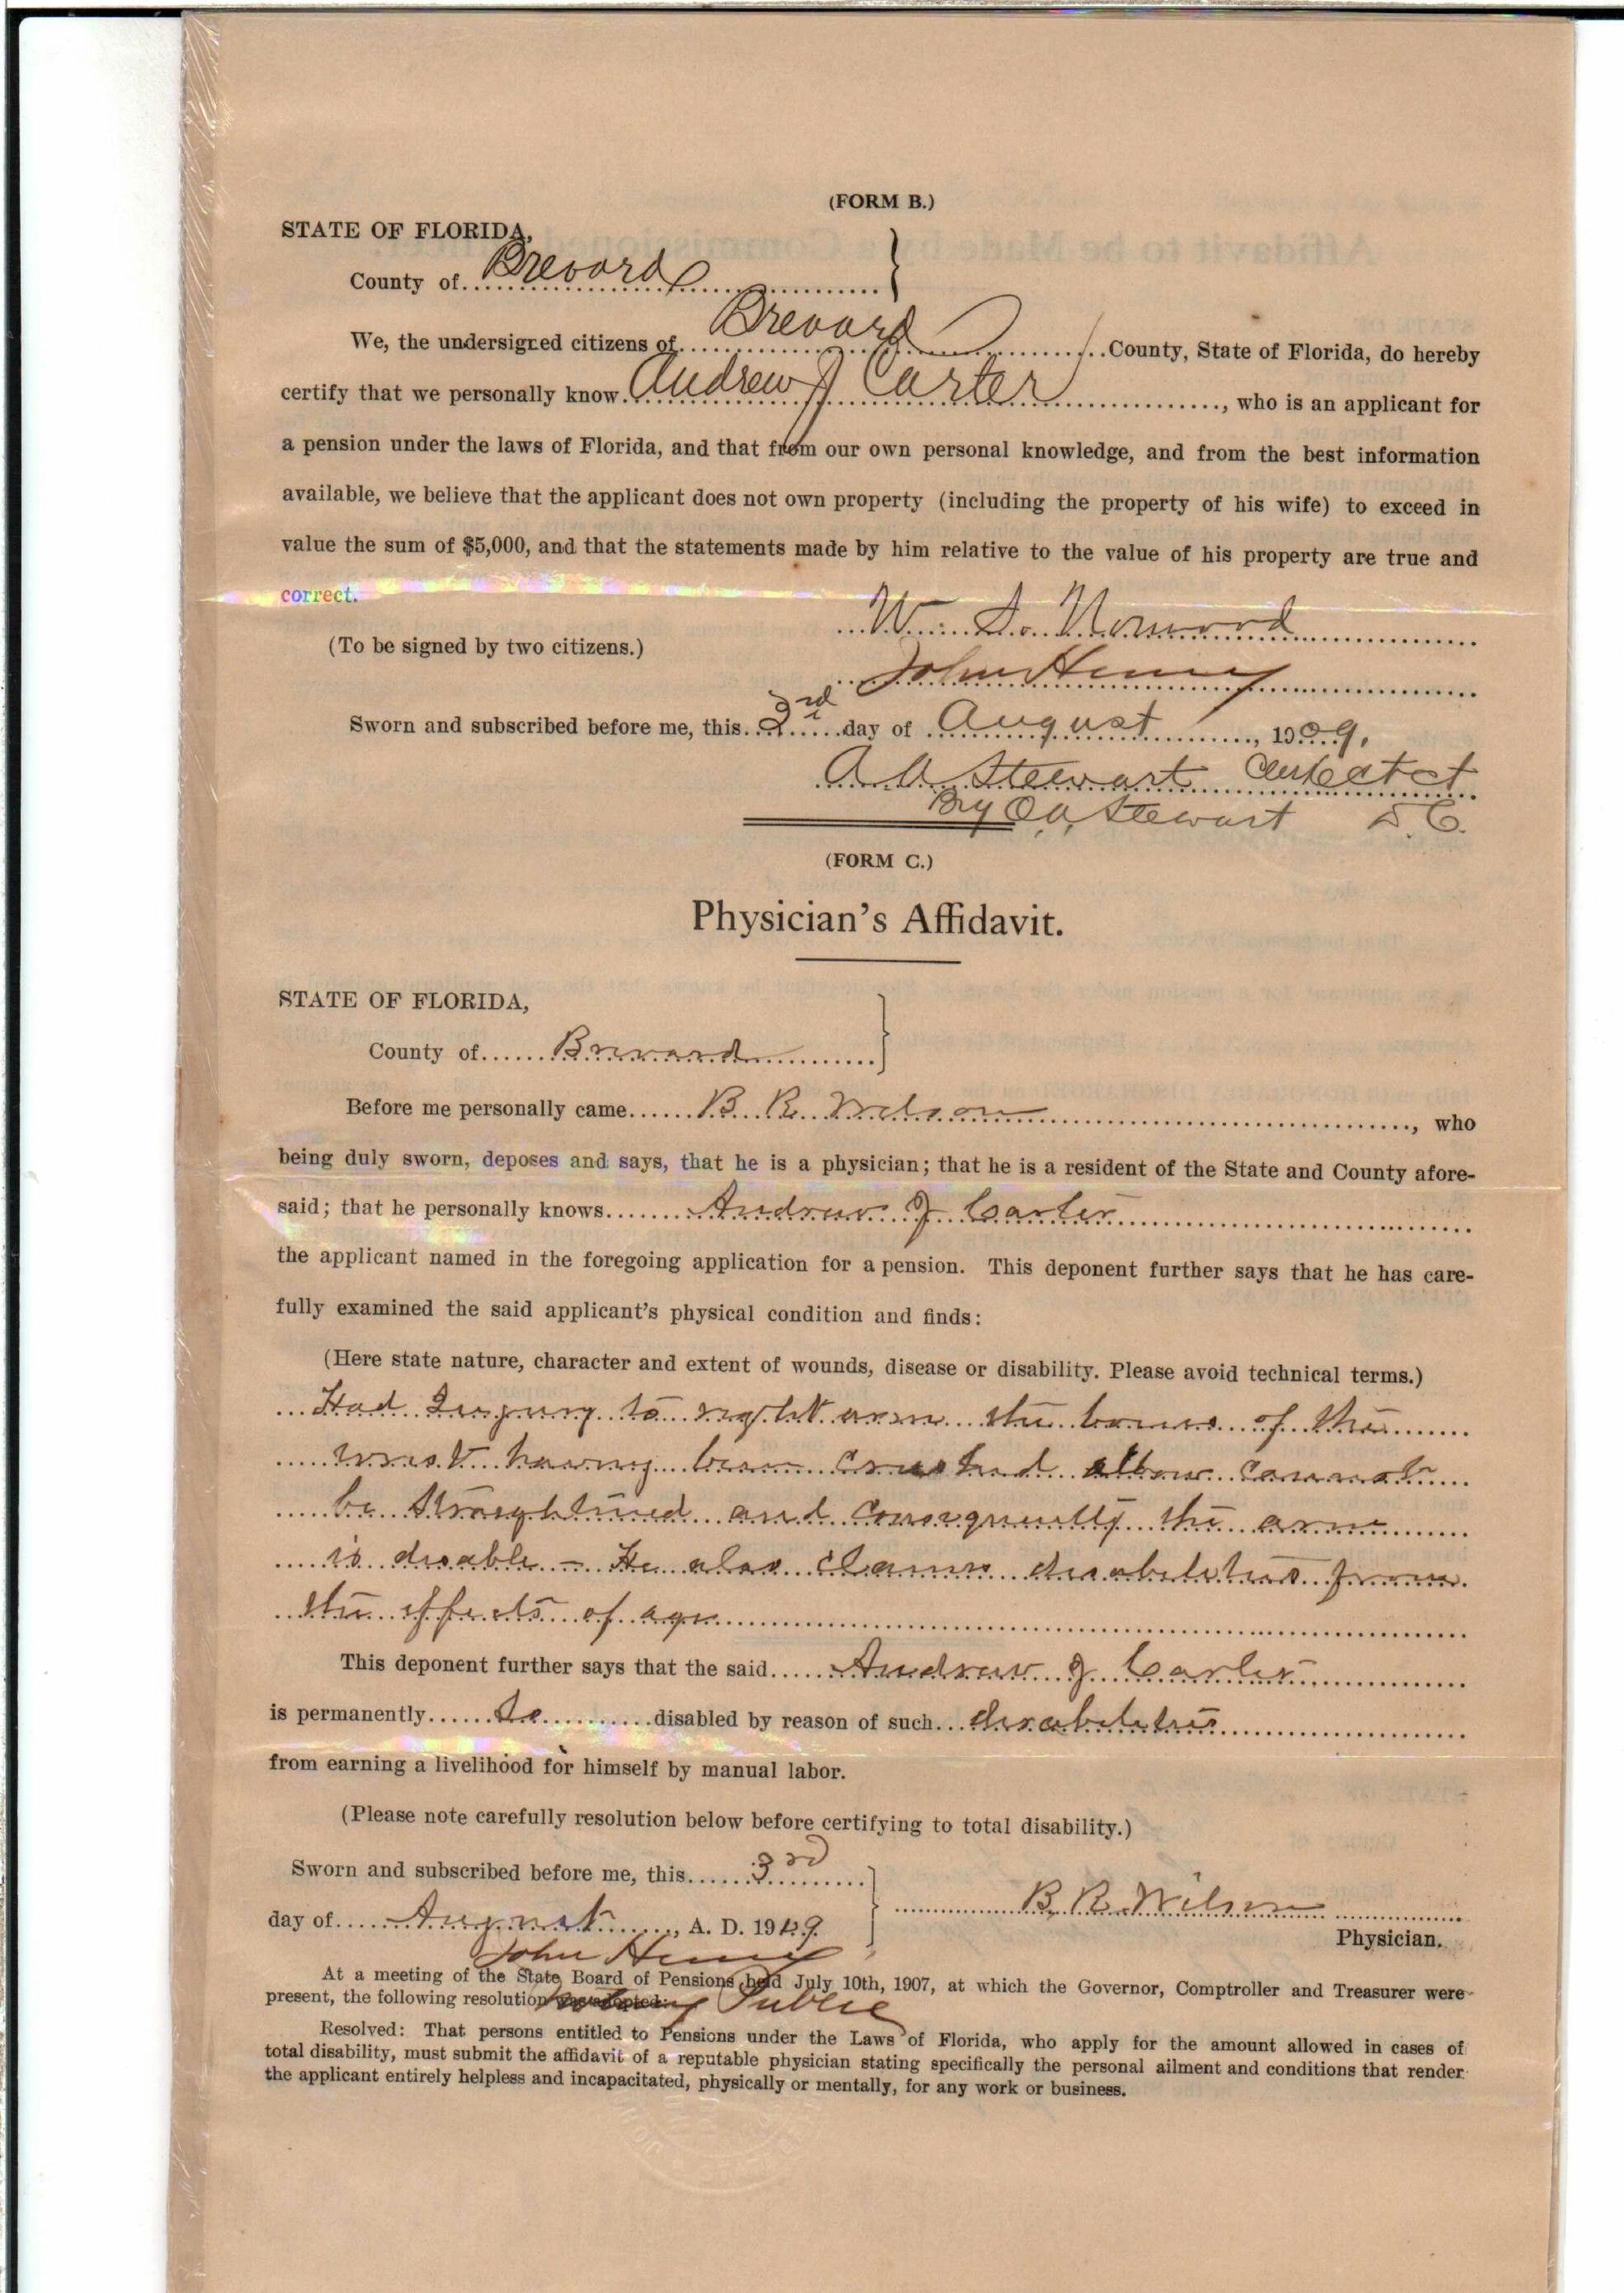 (FORM B.)
STATE OF FLORIDA,
County of Brevard
We, the undersigned citizens of Brevard County, State of Florida, do hereby
certify that we personally know Andrew J Carter, who is an applicant for
a pension under the laws of Florida, and that from our own personal knowledge, and from the best information
available, we believe that the applicant does not own property (including the property of his wife) to exceed in
value the sum of $5,000, and that the statements made by him relative to the value of his property are true and
correct.
W. S. Norwood
(To be signed by two citizens.)
John Henry
Sworn and subscribed before me, this 3rd day of August, 1909.
A A Stewart Clerk Ct Ct
By O. A. Stewart D. C.
(FORM C.)
Physician's Affidavit.
STATE OF FLORIDA,
County of Brevard
Before me personally came B. R. Wilson, who
being duly sworn, deposes and says, that he is a physician; that he is a resident of the State and County afore-
said; that he personally knows Andrew J Carter
the applicant named in the foregoing application for a pension. This deponent further says that he has care-
fully examined the said applicant's physical condition and finds:
(Here state nature, character and extent of wounds, disease or disability. Please avoid technical terms.)
Had Injury to right arm the bones of the
wrist having been crushed elbow cannot
be straightened and consequently the arm
is disable - He also claims disabilities from
the effects of age
This deponent further says that the said Andrew J Carter
is permanently disabled by reason of such disabilities
from earning a livelihood for himself by manual labor.
(Please note carefully resolution below before certifying to total disability.)
Sworn and subscribed before me, this 3rd
day of August, A. D. 1909
B. R. Wilson
Physician.
John Henry
At a meeting of the State Board of Pensions held July 10th, 1907, at which the Governor, Comptroller and Treasurer were
present, the following resolution was adopted:
Notary Public
Resolved: That persons entitled to Pensions under the Laws of Florida, who apply for the amount allowed in cases of
total disability, must submit the affidavit of a reputable physician stating specifically the personal ailment and conditions that render
the applicant entirely helpless and incapacitated, physically or mentally, for any work or business.